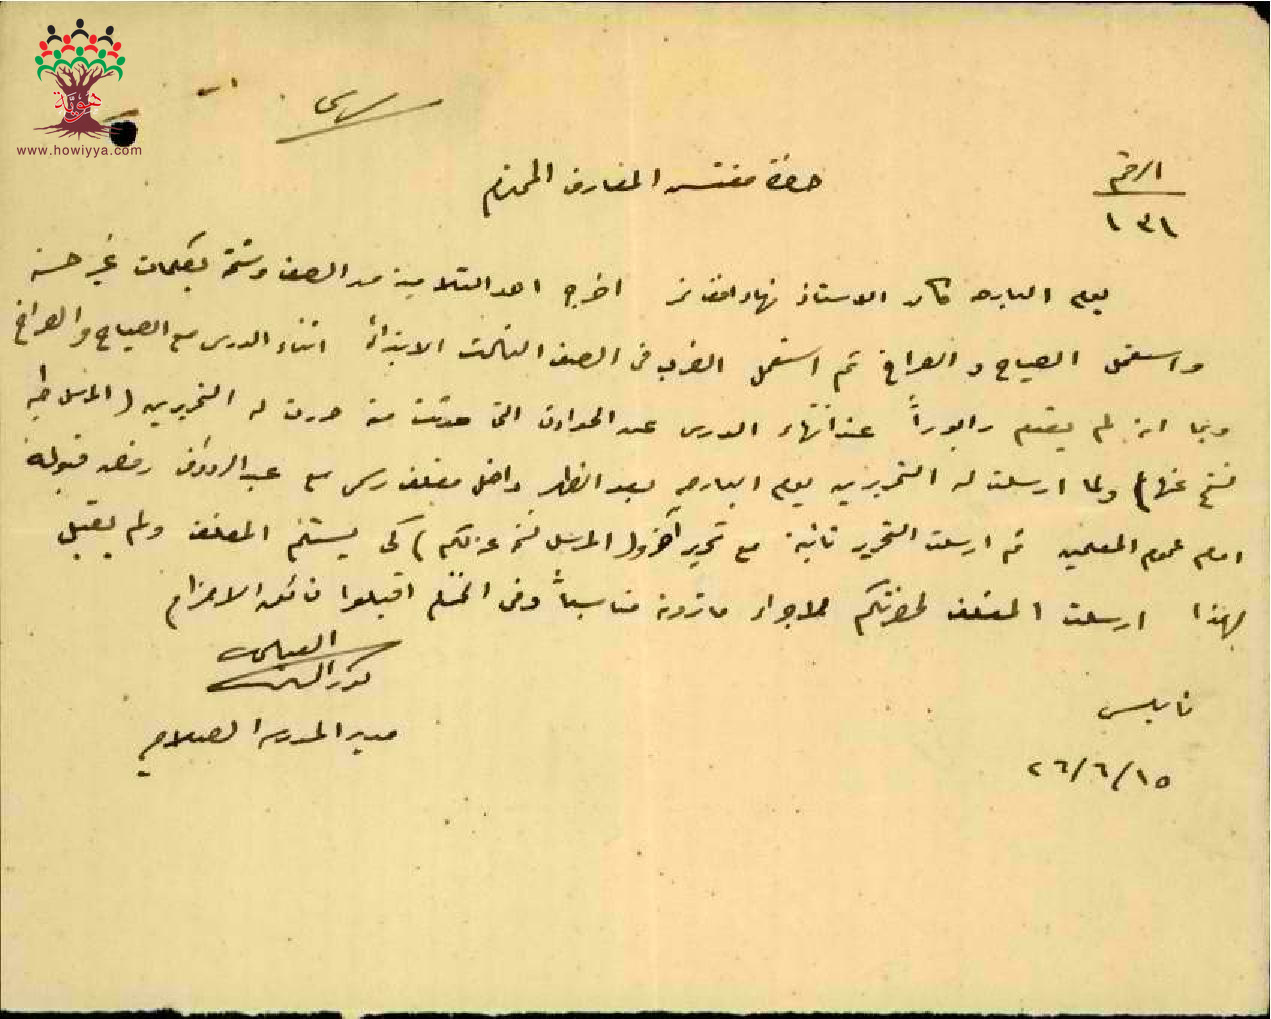 هوية
www.howiyya.com
سري
الرقم
١٣١
حضرة مفتش المعارف المحترم
يوم البارحه كان الاستاذ نهاد اخرج احد التلاميذ من الصف وشتمه بكلمات غير حسنه
واستعمل الصياح والصراخ ثم استعمل الضرب في الصف الثالث الابتدائي اثناء الدرس مع الصياح والصراخ
وبما انه لم يقدم رابوراً عند انتهاء الدرس عن الحوادث التي حدثت منه حررت له التحريرين (المرسل طيه
نسخ عنها) ولما ارسلت له التحريرين يوم البارحه بعد الظهر داخل مغلف رسمي مع عبد الرؤوف رفض قبوله
امام عموم المعلمين ثم ارسلت التحرير ثانية مع تحرير آخر (المرسل نسخه عنه لكم) كي يستلم المغلف ولم يقبل
لهذا ارسلت المغلف لحضرتكم لاجراء ما ترونه مناسباً وفي الختام اقبلوا فائق الاحترام
نور الدين العباسي
مدير المدرسه الصلاحيه
نابلس
٢٦/٦/١٥